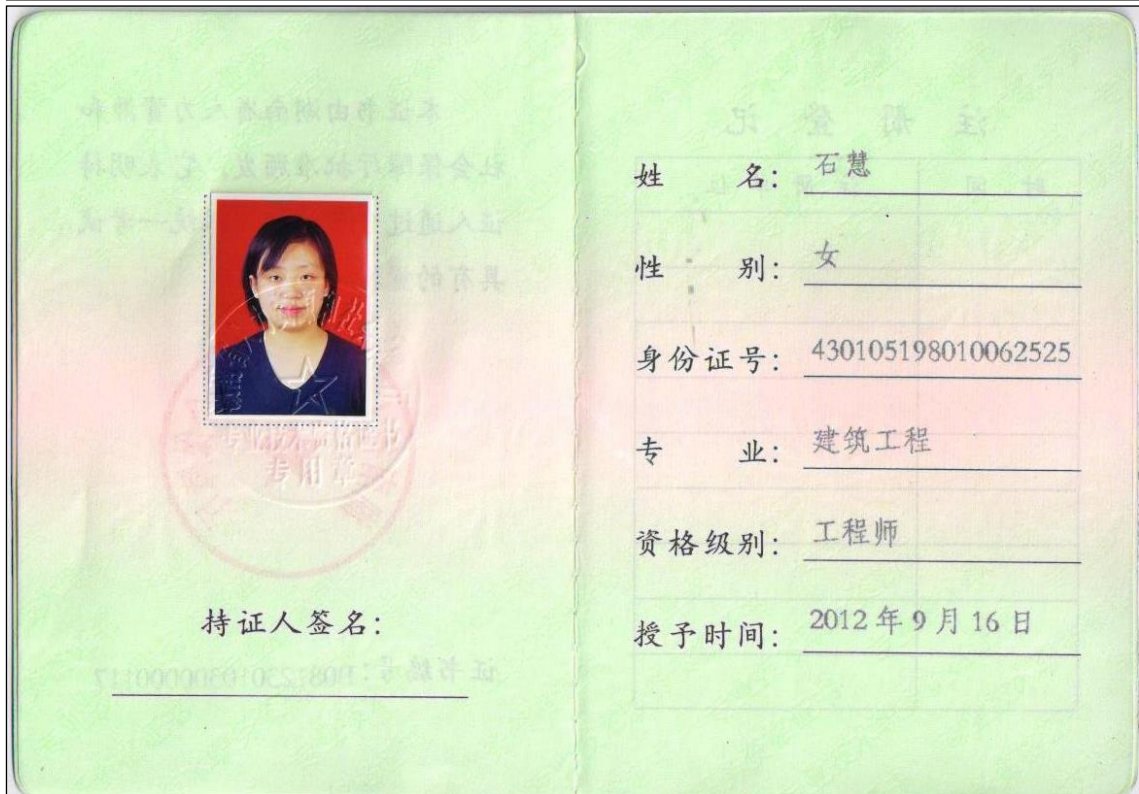 持证人签名：
姓 名：石慧
性 别：女
身份证号：430105198010062525
专 业：建筑工程
资格级别：工程师
授予时间：2012年9月16日
专用章